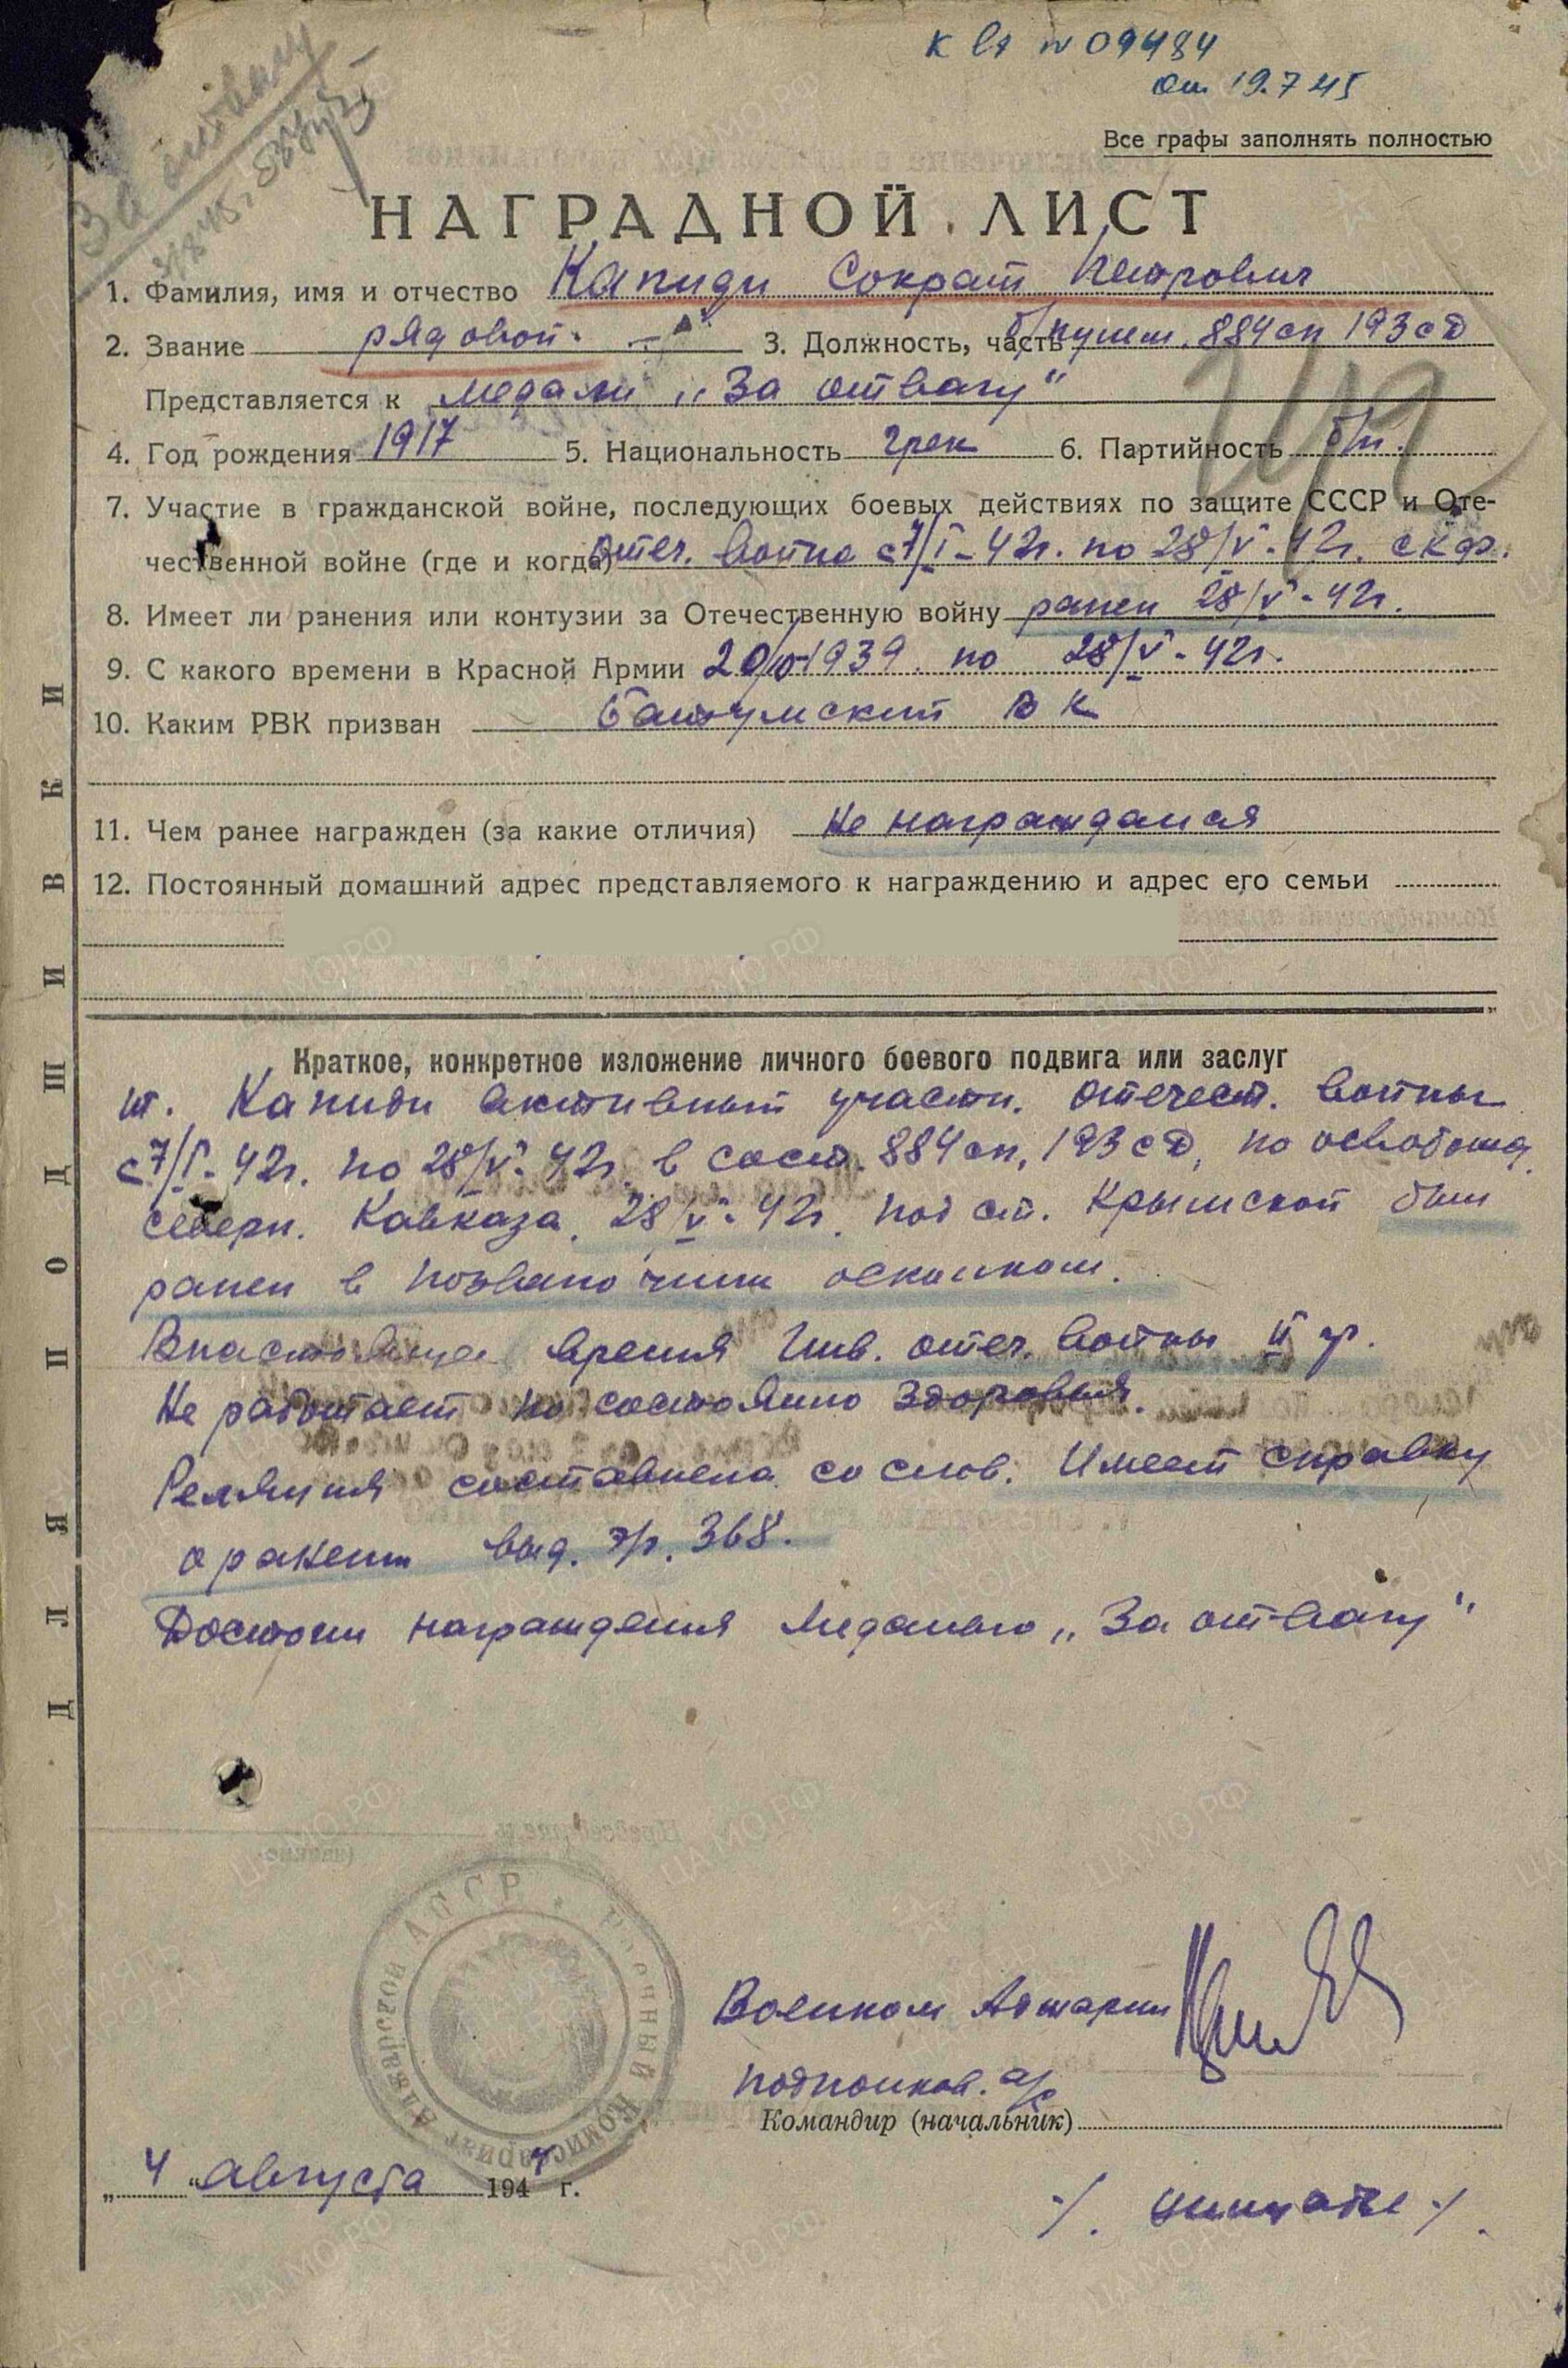 к вх № 09484
от 19.7 45
За отвагу
Все графы заполнять полностью
НАГРАДНОЙ ЛИСТ
1. Фамилия, имя и отчество Капиди Сократ Петрович
2. Звание рядовой. 3. Должность, часть б/пулем. 884 сп 193 сд
Представляется к медали „За отвагу“
4. Год рождения 1917 5. Национальность грек 6. Партийность б/п.
7. Участие в гражданской войне, последующих боевых действиях по защите СССР и Оте-
чественной войне (где и когда) отеч. война с 7/I-42г. по 28/V-42г. скф.
8. Имеет ли ранения или контузии за Отечественную войну ранен 28/V-42г.
9. С какого времени в Красной Армии 1939. по 28/V-42г.
10. Каким РВК призван Батумский В К
11. Чем ранее награжден (за какие отличия) Не награждался
12. Постоянный домашний адрес представляемого к награждению и адрес его семьи
Краткое, конкретное изложение личного боевого подвига или заслуг
т. Капиди активный участн. отечест. войны
с 7/I-42г. по 28/V-42г. в сост. 884 сп, 193 сд, по освобожд.
северн. Кавказа. 28/V-42г. под ст. Крымской был
ранен в позвоночник осколком.
В настоящее время Инв. отеч. войны II гр.
Не работает по состоянию здоровья.
Реляция составлена со слов. Имеет справку
о ранении выд. э/г. 368.
Достоин награждения медалью „За отвагу“
Военком Аджарии
подполков. а/с
Командир (начальник)
„4“ августа 194 г.
ДЛЯ ПОДШИВКИ